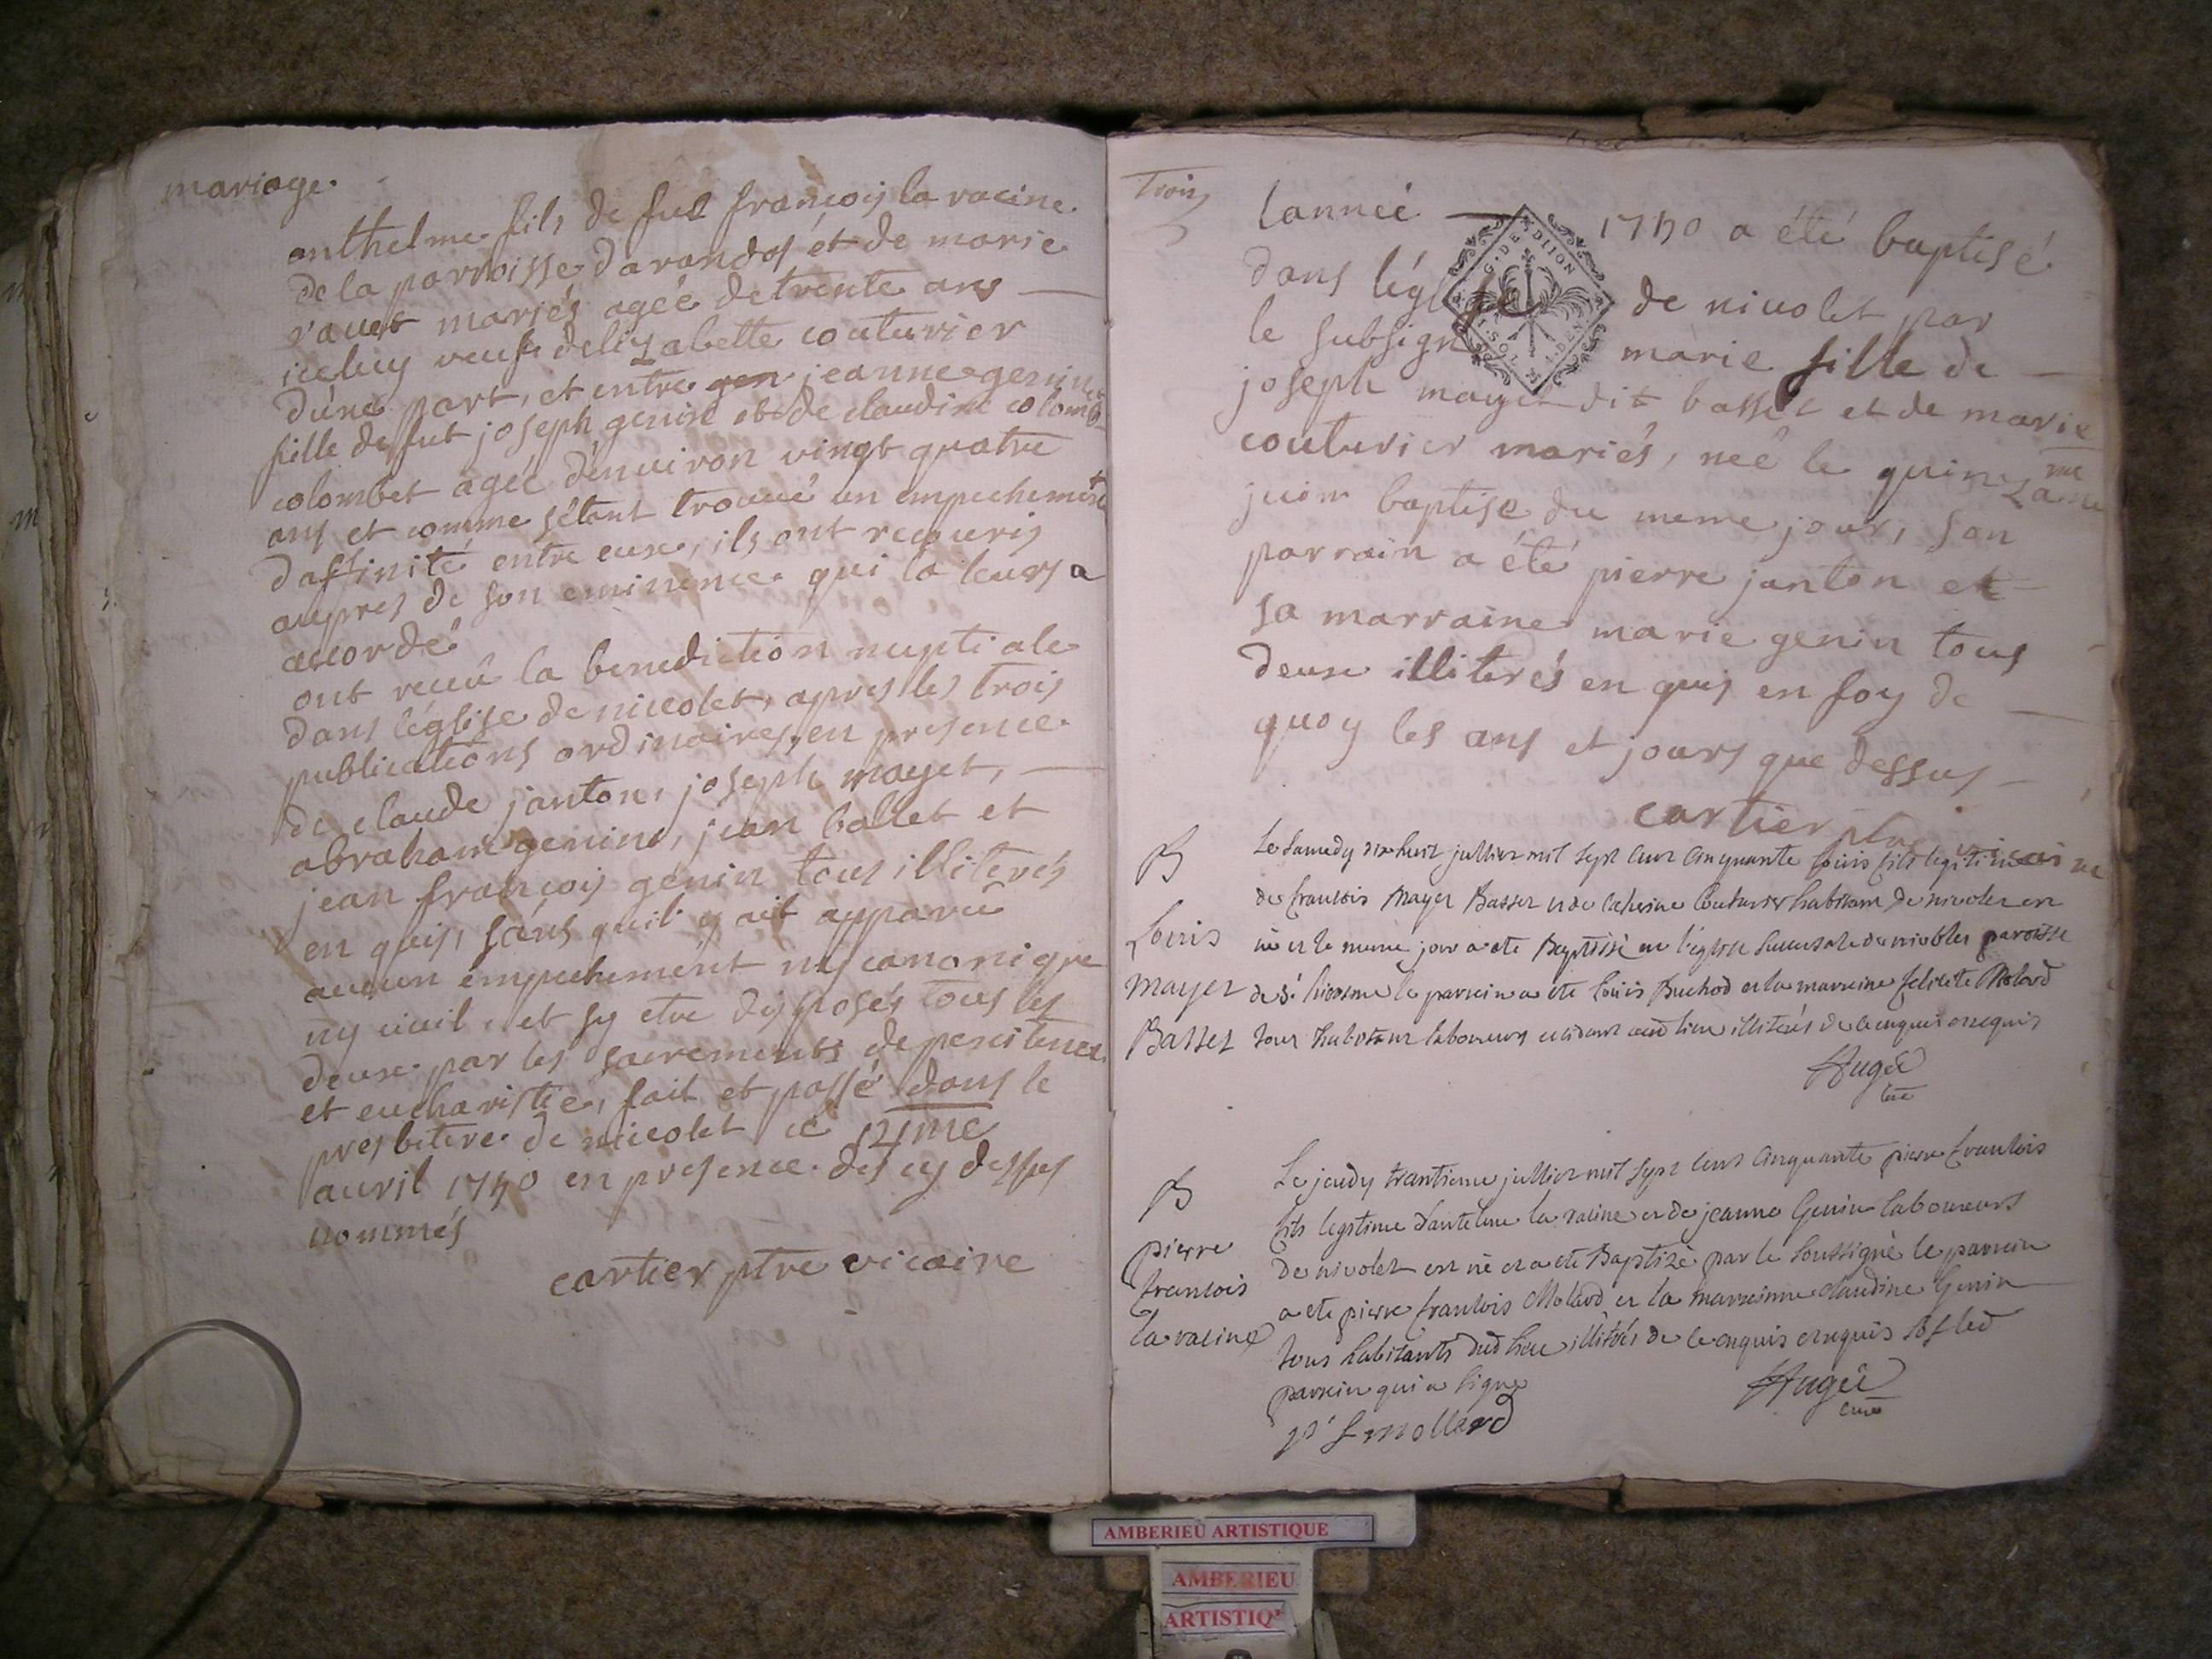 mariage.
anthelme fils de fut françois la racine
de la parroisse darandas et de marie
ravet mariés agée de trente ans
iceluy veuf delizabette couturier
dune part, et entre gen jeanne genin
fille de fut joseph genin et de claudine colomb
colombet agée denuiron vingt quatre
ans et comme sétant trouué un empechement
daffinité entre eux, ils ont recouris
aupres de son eminence qui la leurs a
accordé
ont recuû la benediction nuptiale
dans léglise de niuolet, apres les trois
publications ordinaires, en presence
de claude janton, joseph mayet,
abraham genin, jean ballet et
jean françois genin tous illiterés
en quis, sans quil y ait apparu
aucun empechement ny canonique
ny ciuil, et sy etre disposés tous les
deux par les sacrements de penitence
et eucharistie, fait et passé dans le
presbitere de niuolet ce 14me
auril 1750 en presence des cy dessus
nommés
cartier ptre vicaire
Trois
lanneé 1750 a été baptisé
dans léglise de niuolet par
le subsigné marie fille de
joseph mayet dit basset et de marie
couturier mariés, neé le quinzame
juin baptise du meme jour, son
parrain a été pierre janton et
sa marraine marie genin tous
deux illiterés en quis en foy de
quoy les ans et jours que dessus
cartier ptre vicaire
B
Louis
Mayet
Basset
Le samedy dix huit jullier mil sept cent cinquante louis fils legitime
de francois Mayet Basset et de Catherine Couturier habitant de nivolet est
né et le meme jour a ete Baptisé en l'eglise succursale de nivolet paroisse
de St hierosme le parrein a ete louis Buchod et la marreine felicite Molard
tous habitant laboureurs audit lieu illiterés de ce enquis et requis
Augée
curé
B
pierre
francois
la racine
Le jeudy trantieme jullier mil sept cent cinquante pierre francois
fils legitime d'antelme la racine et de jeanne Genin laboureurs
de nivolet est né et a ete Baptizé par le soussigné le parrein
a ete pierre francois Molard et la marreinne claudine Genin
tous habitants dud lieu illiterés de ce enquis et requis sof led
parrein qui a signe
pr f mollard
Augée
curé
G. DE DIION
AMBERIEU ARTISTIQUE
AMBERIEU
ARTISTIQ